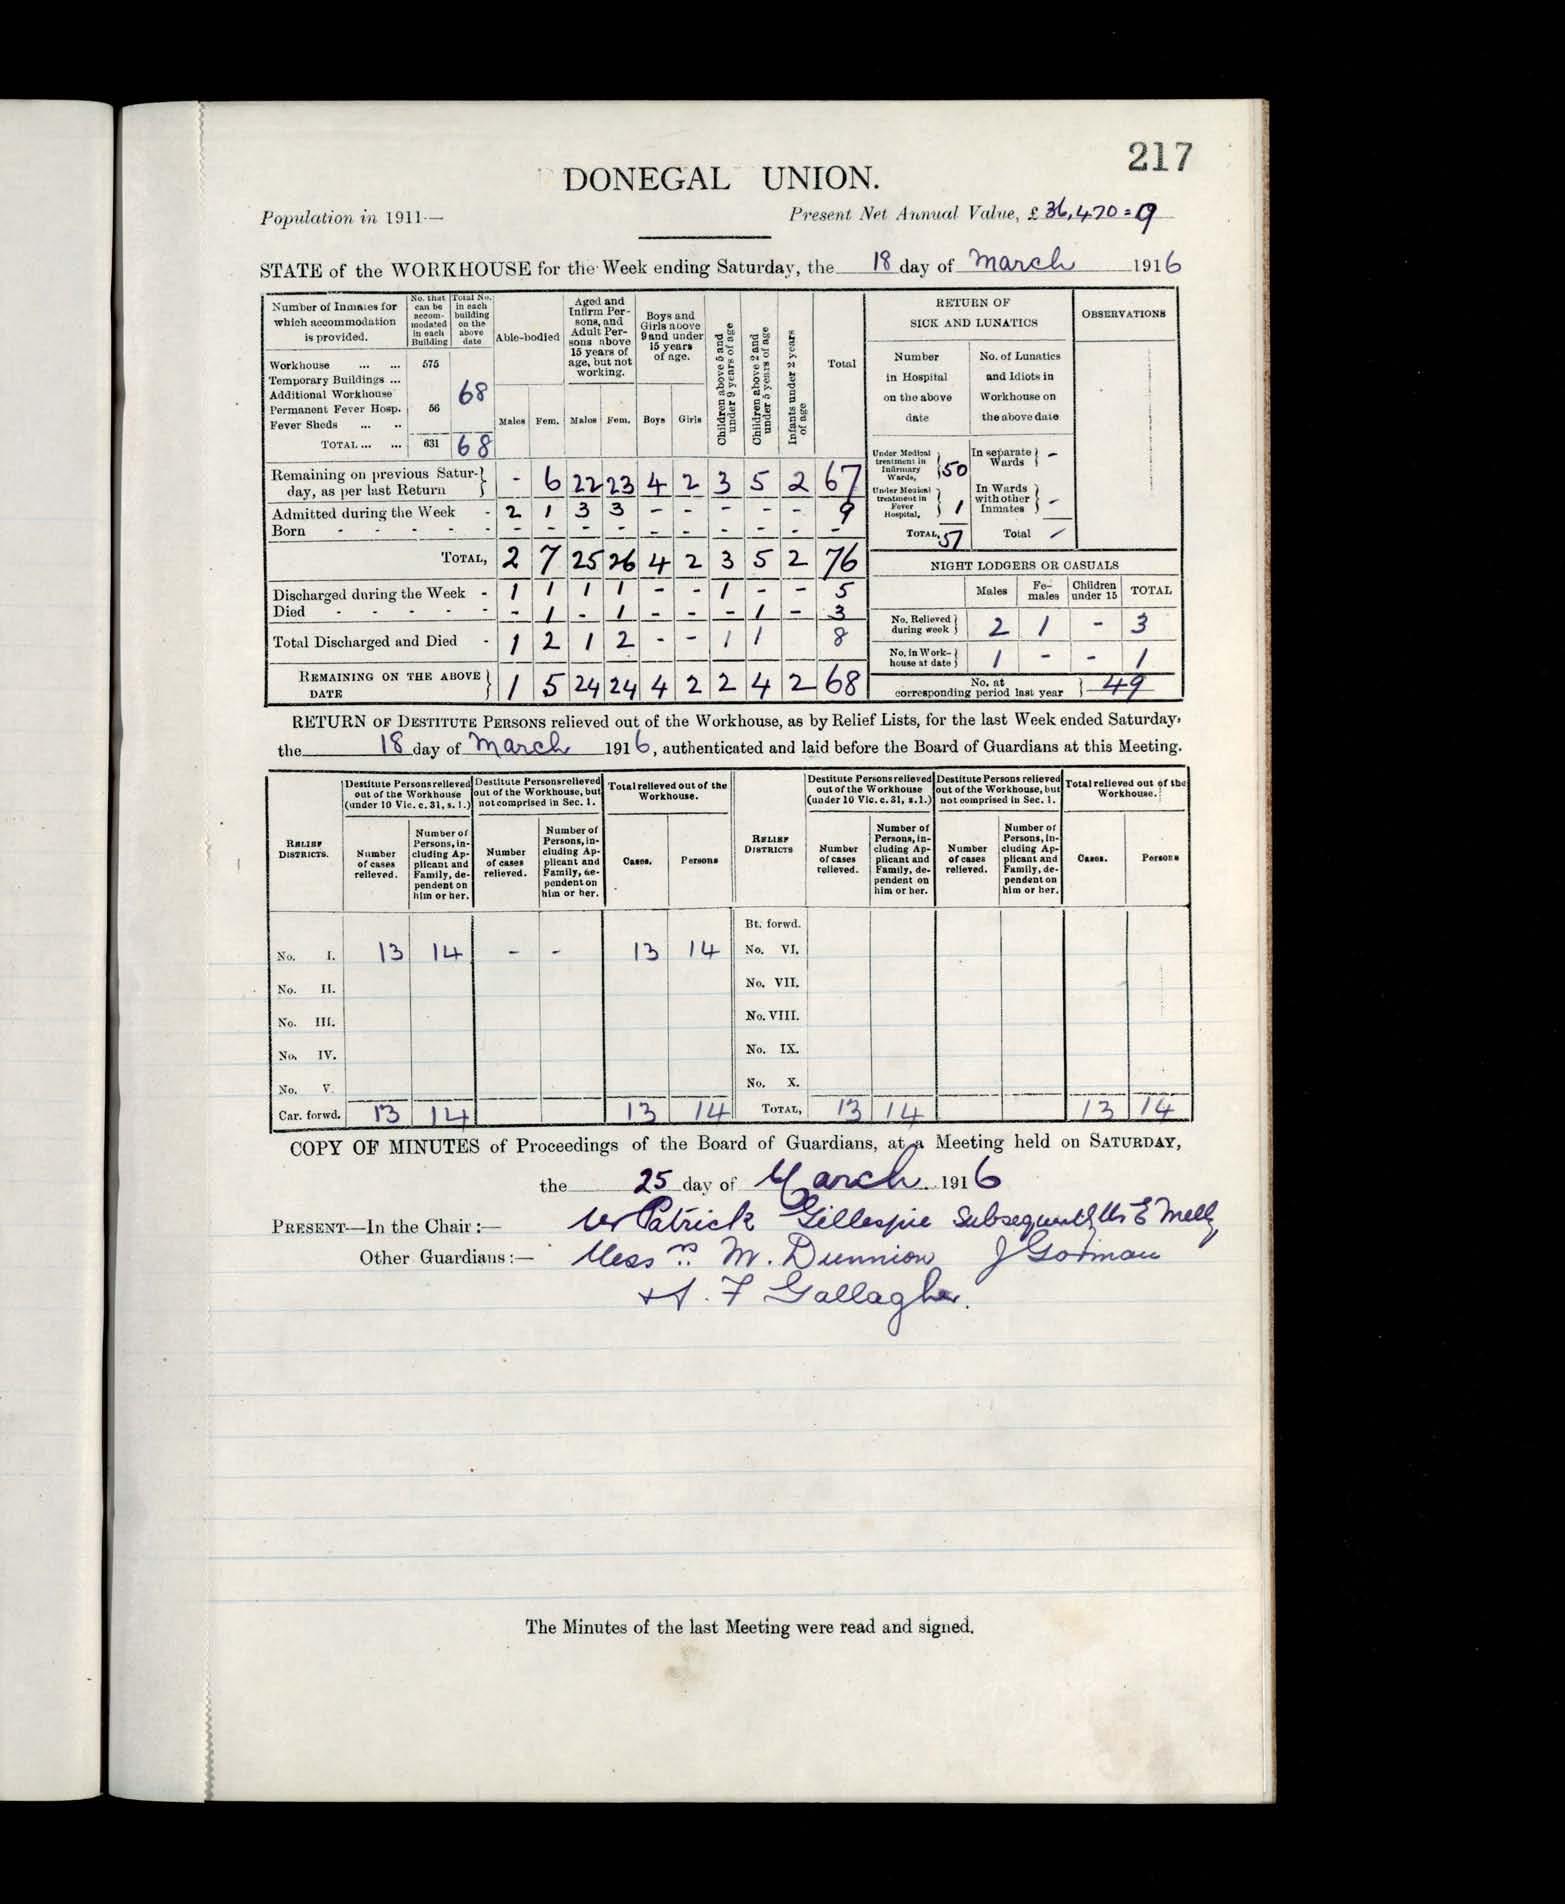 217
DONEGAL UNION.
Population in 1911—
Present Net Annual Value, £36,470=9
STATE of the WORKHOUSE for the Week ending Saturday, the 18 day of March 1916
Number of Inmates for which accommodation is provided.
No. that can be accommodated in each Building
Total No. in each building on the above date
Able-bodied
Aged and Infirm Persons, and Adult Persons above 15 years of age, but not working.
Boys and Girls above 9 and under 15 years of age.
Children above 5 and under 9 years of age
Children above 2 and under 5 years of age
Infants under 2 years of age
Total
Males Fem. Males Fem. Boys Girls
Workhouse ... ... 575
Temporary Buildings ...
Additional Workhouse 68
Permanent Fever Hosp. 56
Fever Sheds ... ..
TOTAL ... ... 631 68
Remaining on previous Saturday, as per last Return - 6 22 23 4 2 3 5 2 67
Admitted during the Week - 2 1 3 3 - - - - - 9
Born - - - - - - - - - - - - - - -
TOTAL, 2 7 25 26 4 2 3 5 2 76
Discharged during the Week - 1 1 1 1 - - 1 - - 5
Died - - - - - - 1 - 1 - - - 1 - 3
Total Discharged and Died - 1 2 1 2 - - 1 1 8
REMAINING ON THE ABOVE DATE 1 5 24 24 4 2 2 4 2 68
RETURN OF SICK AND LUNATICS
OBSERVATIONS
Number in Hospital on the above date
No. of Lunatics and Idiots in Workhouse on the above date
Under Medical treatment in Infirmary Wards, 50
In separate Wards -
Under Medical treatment in Fever Hospital, 1
In Wards with other Inmates -
TOTAL, 51 Total -
NIGHT LODGERS OR CASUALS
Males Females Children under 15 TOTAL
No. Relieved during week 2 1 - 3
No. in Workhouse at date 1 - - 1
No. at corresponding period last year 49
RETURN OF DESTITUTE PERSONS relieved out of the Workhouse, as by Relief Lists, for the last Week ended Saturday,
the 18 day of March 1916, authenticated and laid before the Board of Guardians at this Meeting.
RELIEF DISTRICTS.
Destitute Persons relieved out of the Workhouse (under 10 Vic. c. 31, s. 1.)
Destitute Persons relieved out of the Workhouse, but not comprised in Sec. 1.
Total relieved out of the Workhouse.
Number of cases relieved.
Number of Persons, including Applicant and Family, dependent on him or her.
Number of cases relieved.
Number of Persons, including Applicant and Family, dependent on him or her.
Cases. Persons
RELIEF DISTRICTS
Destitute Persons relieved out of the Workhouse (under 10 Vic. c. 31, s. 1.)
Destitute Persons relieved out of the Workhouse, but not comprised in Sec. 1.
Total relieved out of the Workhouse.
Number of cases relieved.
Number of Persons, including Applicant and Family, dependent on him or her.
Number of cases relieved.
Number of Persons, including Applicant and Family, dependent on him or her.
Cases. Persons
Bt. forwd.
No. I. 13 14 - - 13 14 No. VI.
No. II. No. VII.
No. III. No. VIII.
No. IV. No. IX.
No. V. No. X.
Car. forwd. 13 14 13 14 TOTAL, 13 14 13 14
COPY OF MINUTES of Proceedings of the Board of Guardians, at a Meeting held on SATURDAY,
the 25 day of March 1916
PRESENT—In the Chair :— Mr Patrick Gillespie Subsequently Mr E Melly
Other Guardians :— Messrs. M. Dunnion J Gorman
F Gallagher.
The Minutes of the last Meeting were read and signed.